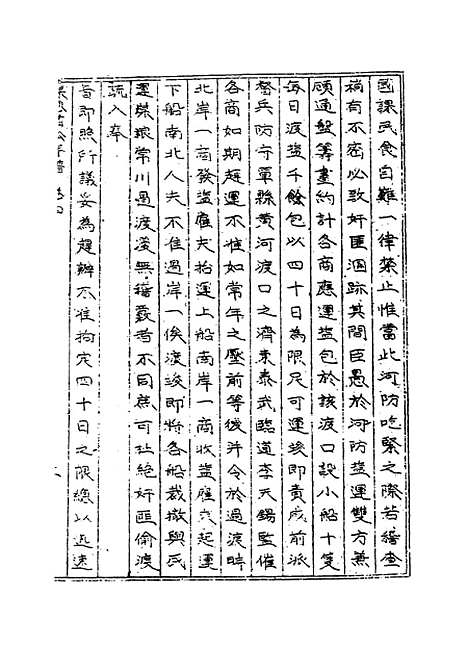 國課民食自難一律禁止惟當此河防吃緊之際若稽查
稍有不密必致奸匪溷跡其間臣愚於河防鹽運雙方兼
顧通盤籌畫約計各商應運鹽包於該渡口設小船十隻
每日渡鹽千餘包以四十日為限尽可運竣即責成前派
督兵防守鞏縣黃河渡口之濟東泰武臨道李天錫監催
各商如期趕運不准如常年之壓前等後并令於過渡時
北岸一商發鹽雇夫抬運上船南岸一商收鹽雇夫起運
下船南北人夫不准過岸一俟渡竣即將各船裁撤與民
運柴糧常川過渡漫無稽覈者不同蕉可杜絕奸匪偷渡
疏入奉
旨即照所議妥為趕辦不准拘定四十日之限總以迅速